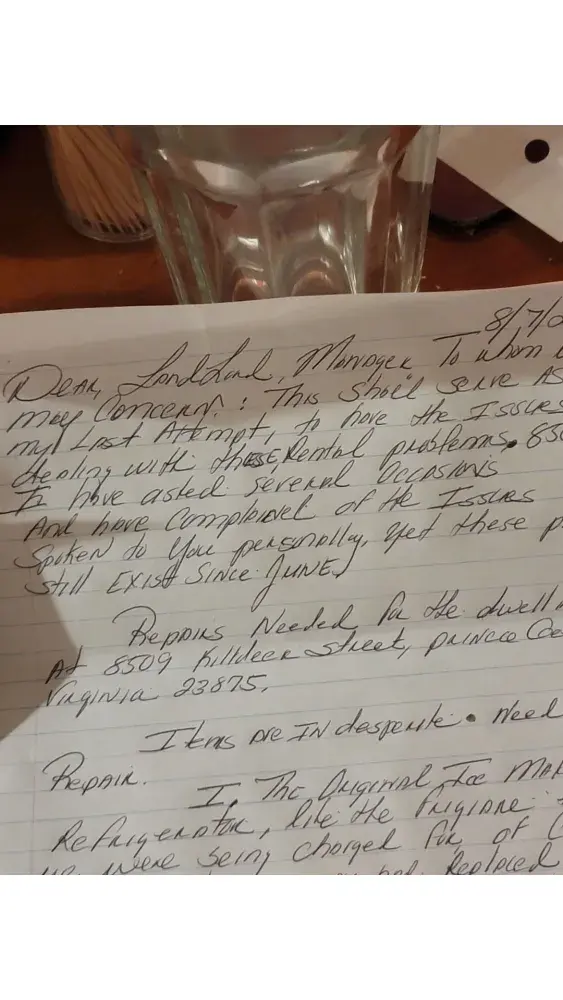 8/7/2
Dear, LandLord, Manager To whom i
may Concern! : This shall serve AS
my Last Attempt, to have the Issues
dealing with these Rental problems. 850
I have asked several Occasions
And have Complained of the Issues
Spoken to you personally, yet these p
still Exist Since JUNE,
Repairs Needed for the dwell
At 8509 Killdeer street, prince Geo
Virginia 23875,
Items are IN desperate Need
Repair.
I, The Original Ice Mak
Refrigerator, like the frigidare
were being charged for, of C
not Replaced